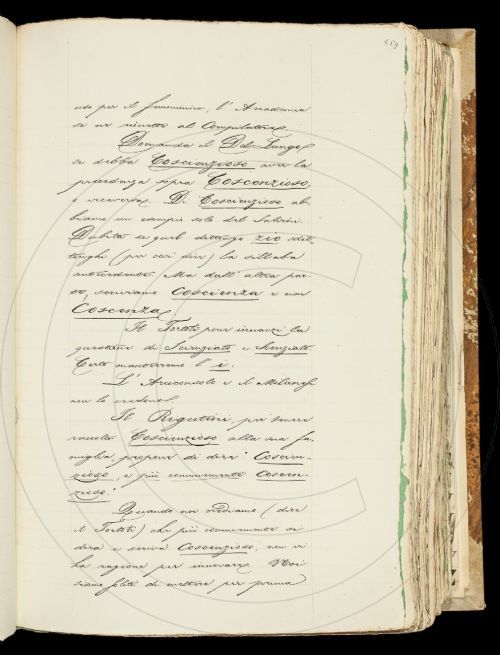 459
uso per il femminino, l'Accademia
se ne rimette al Compilatore.
Domanda il Del-Lungo
se debba Coscienzioso aver la
precedenza sopra Coscenzioso,
o viceversa. D. Coscienzioso ab-
biamo un esempio solo del Salvini.
Dubita se quel dittongo zio
tenghi (per così dire) la sillaba
antecedente. Ma dall'altra par-
te, scriviamo Coscienza e non
Coscenza.
Il Tortoli pone innanzi la
questione di Scienziato e Scenziato.
Certo manterremo l'i.
L'Arciconsolo e il Milanesi
non lo credono.
Il Rigutini, per tenere
raccolto Coscienzioso alla sua fa-
miglia propone di dire "Coscien-
zioso, e più comunemente Coscen-
zioso."
Quando noi crediamo (dice
il Tortoli) che più comunemente si
dica e scriva Coscenzioso, non vi
ha ragione per innovare. Noi
siamo soliti di mettere per prima